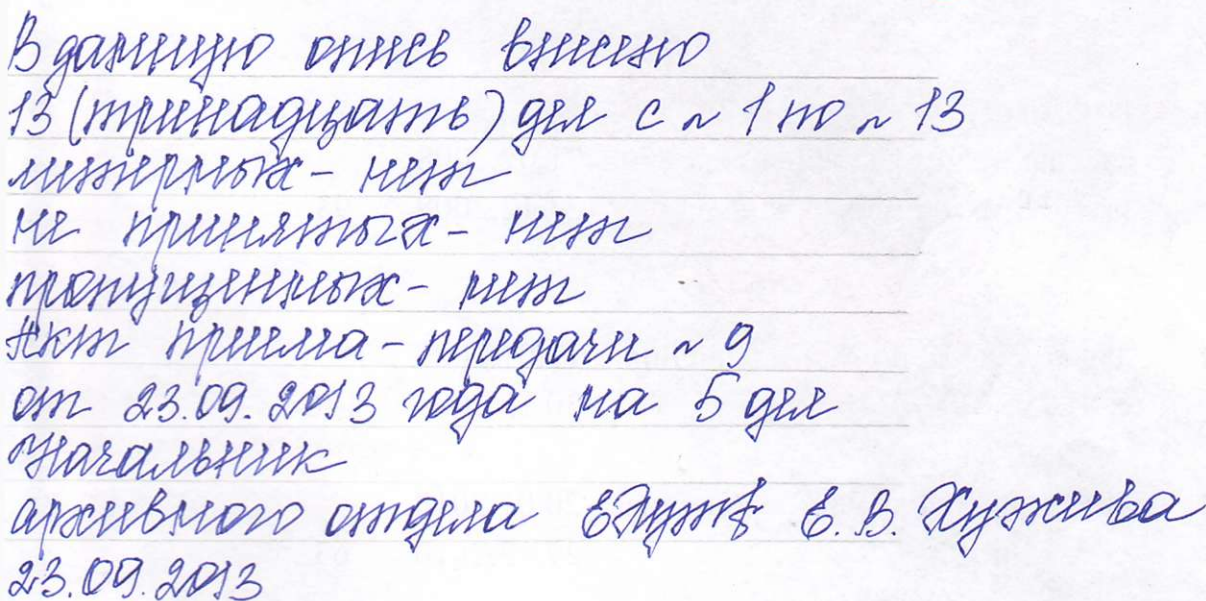 В данную опись внесено
13 (тринадцать) дел с № 1 по № 13
литерных - нет
не принятых - нет
пропущенных - нет
Акт приема - передачи № 9
от 23.09.2013 года на 5 дел
Начальник
архивного отдела Е.В.
23.09.2013